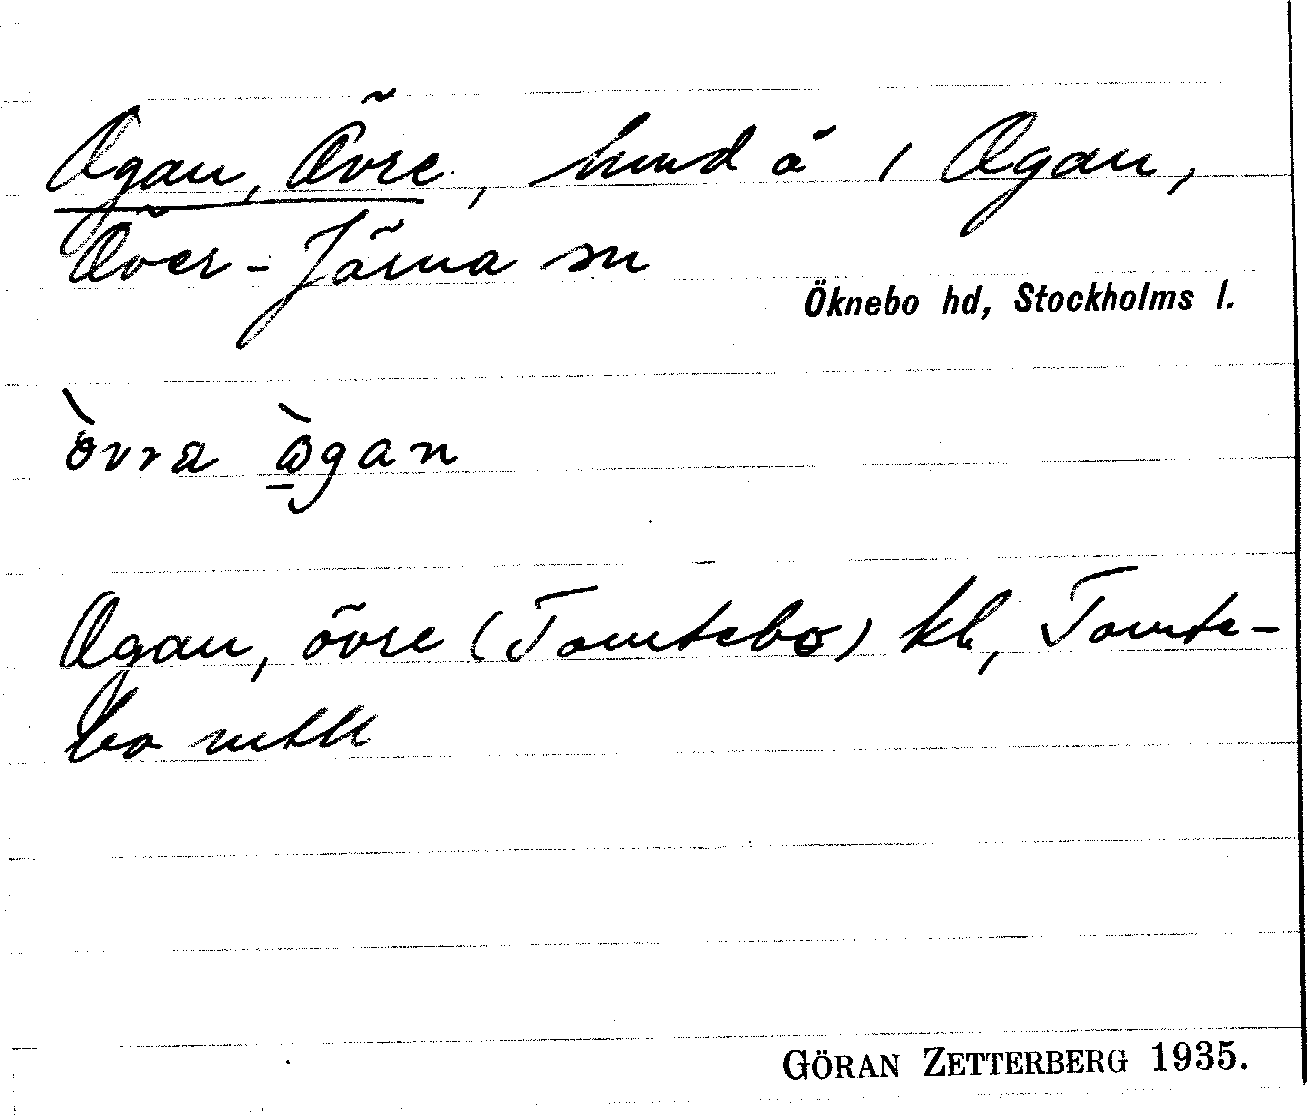 Ogan, Övre, hmd å 1 Ogan,
Över-Järna sn
Öknebo hd, Stockholms l.
òvra ògan
Ogan, övre (Tomtebo) kl, Tomte-
bo mtll
GÖRAN ZETTERBERG 1935.